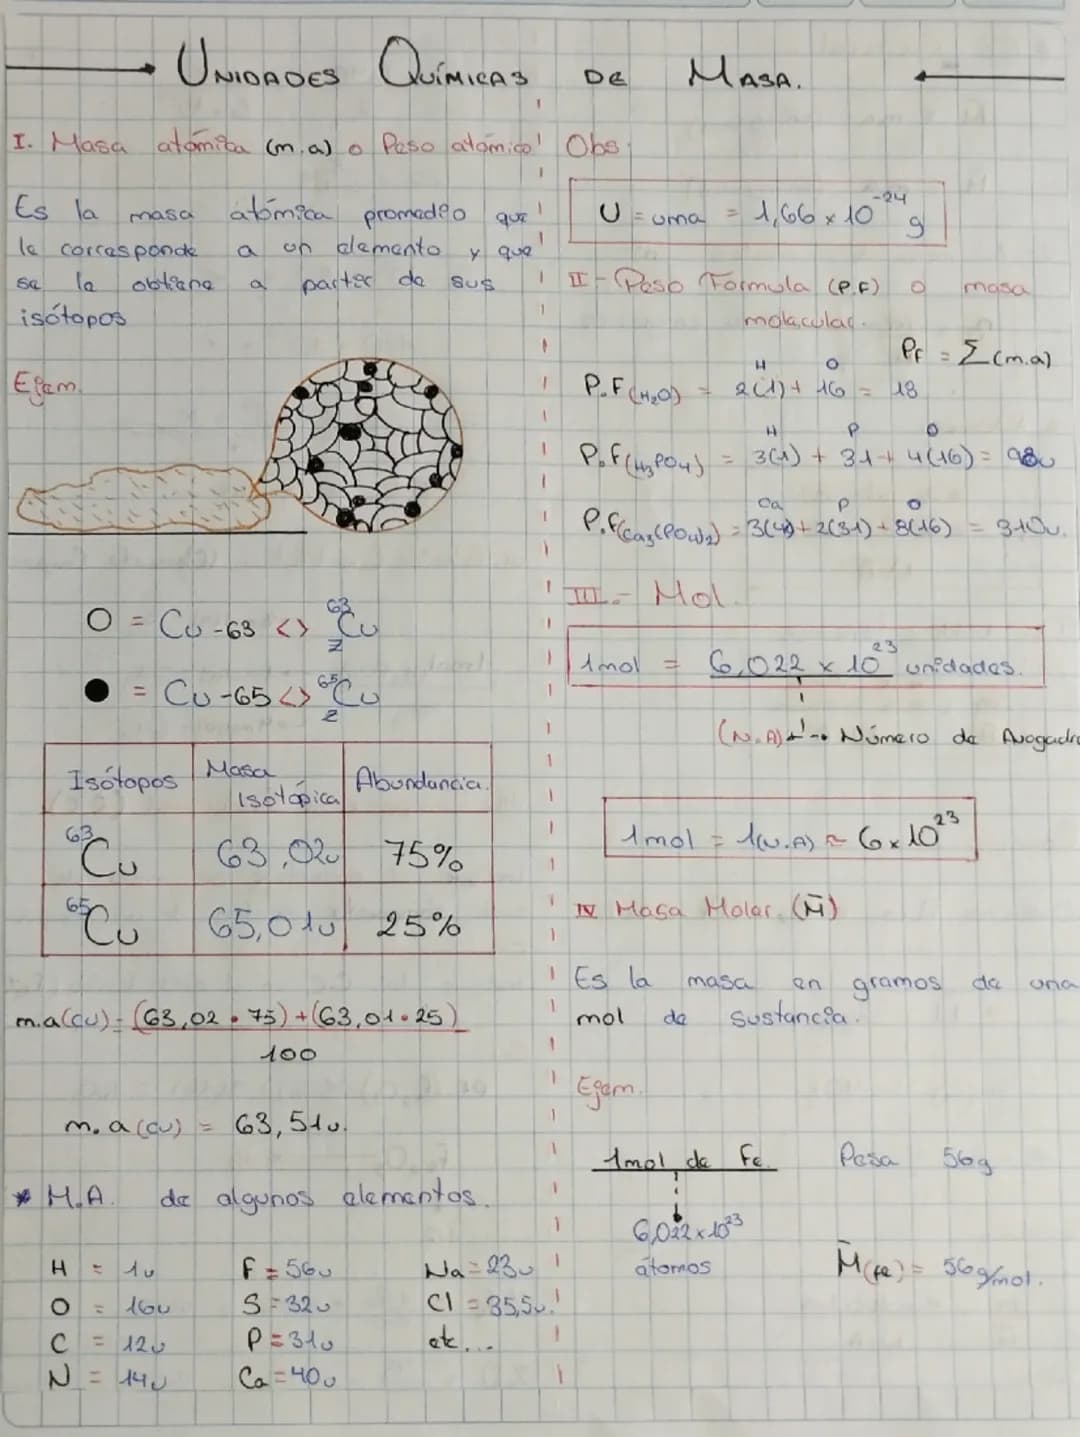 UNIDADES QUÍMICAS DE MASA.
I. Masa atómica (m.a) o Peso atómico
Es la masa atómica promedio que
le corresponde a un elemento y que
se la obtiene a partir de sus
isótopos
Ejem.
O = Cu-63 <> 63 Cu Z
● = Cu-65 <> 65 Cu Z
Isótopos Masa Isotópica Abundancia.
⁶³Cu 63,02u 75%
⁶⁵Cu 65,01u 25%
m.a(Cu) = (63,02 • 75) + (63,01 • 25)
100
m.a(Cu) = 63,51u.
* M.A. de algunos elementos.
H = 1u F = 56u Na = 23u
O = 16u S = 32u Cl = 35,5u.
C = 12u P = 31u etc...
N = 14u Ca = 40u
Obs
U = uma = 1,66 x 10⁻²⁴ g
II - Peso Formula (P.F) o masa
molecular.
Pf = Σ(m.a)
H O
P.F(H₂O) = 2(1) + 16 = 18
H P O
P.F(H₃PO₄) = 3(1) + 31 + 4(16) = 98u
Ca P O
P.F(Ca₃(PO₄)₂) = 3(40) + 2(31) + 8(16) = 310u.
III.- Mol.
1mol = 6,022 x 10²³ unidades.
(N.A) Número de Avogadro
1mol = 1(N.A) ≈ 6x10²³
IV Masa Molar. (M̄)
Es la masa en gramos de una
mol de sustancia.
Ejem.
1mol de Fe. Pesa 56g
6,022 x 10²³
átomos M̄(fe) = 56g/mol.